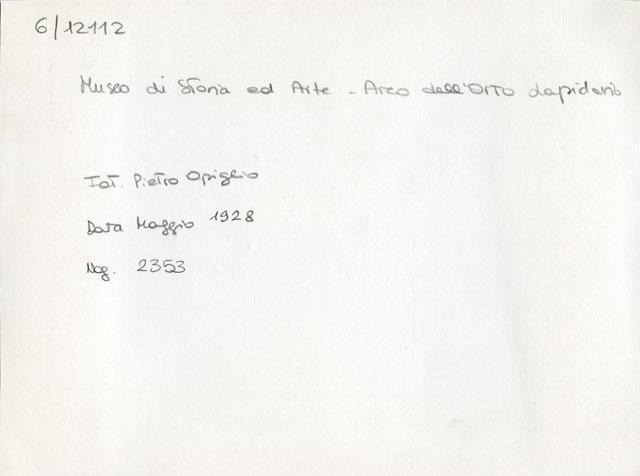 6/12112
Museo di Storia ed Arte - Arco dell'Orto Lapidario
Fot. Pietro Opiglio
Data Maggio 1928
Neg. 2353